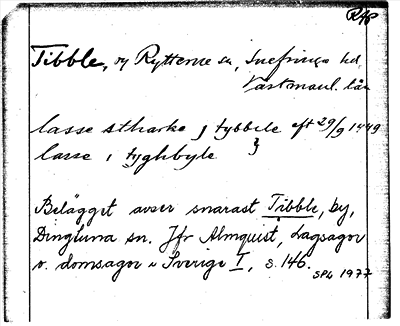 RAP
Tibble, by Rytterne sn, Snefringe hd,
Västmanl. län
lasse stharke j tybbele eft 29/9 1449
lasse i tyghbyle }
Belägget avser snarast Tibble, by,
Dingtuna sn. Jfr Almquist, Lagsagor
o. domsagor i Sverige I, s. 146.
SPL 1977